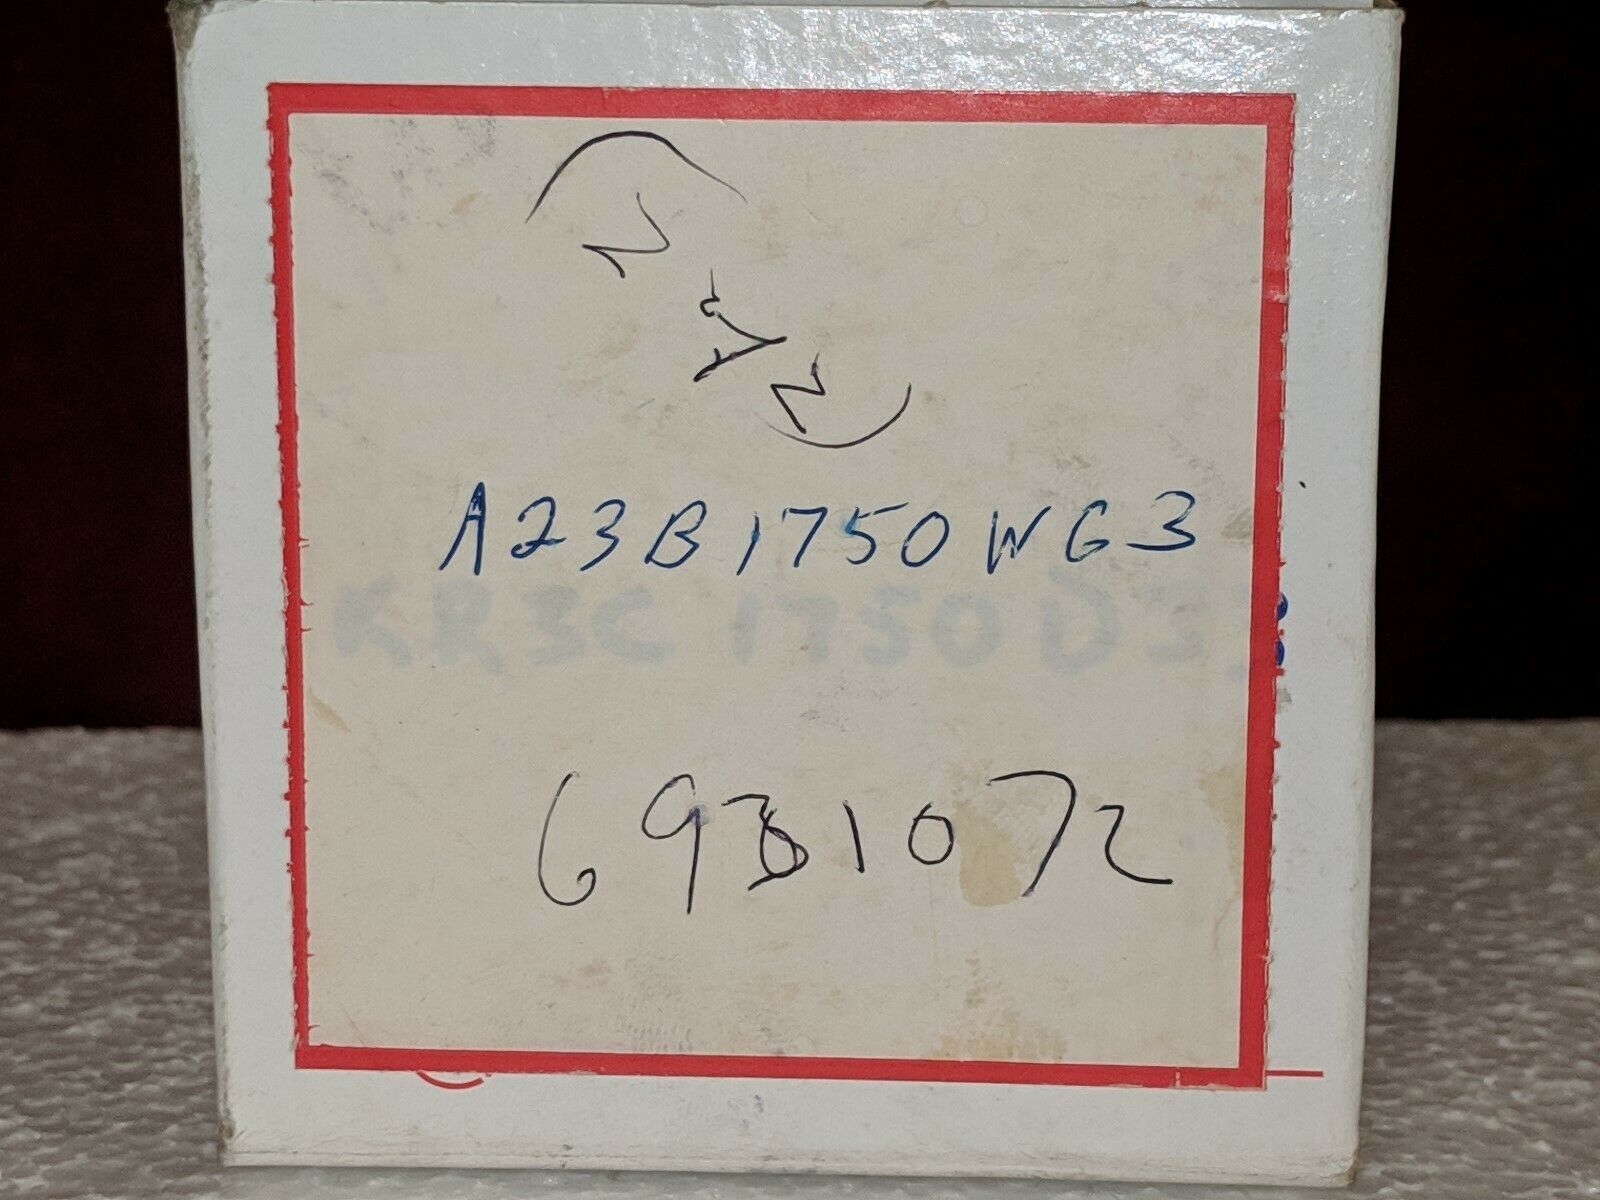 A23B1750WG3
KR3C 1750
6931072